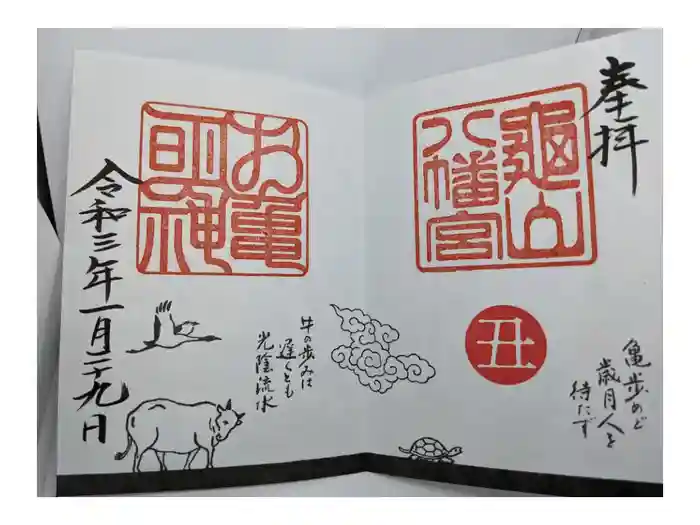 奉拝
龜山
八幡宮
丑
亀歩めど
歳月人を
待たず
お亀
明神
牛の歩みは
遅くとも
光陰流水
令和三年一月二十九日